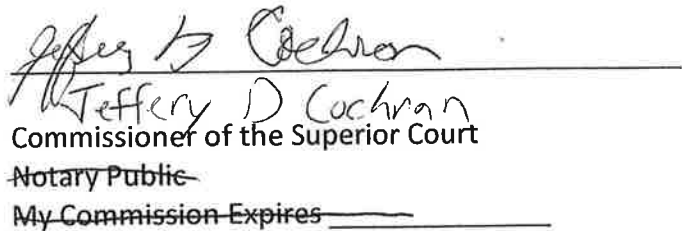 Jeffery D Cochran
Jeffery D Cochran
Commissioner of the Superior Court
Notary Public
My Commission Expires